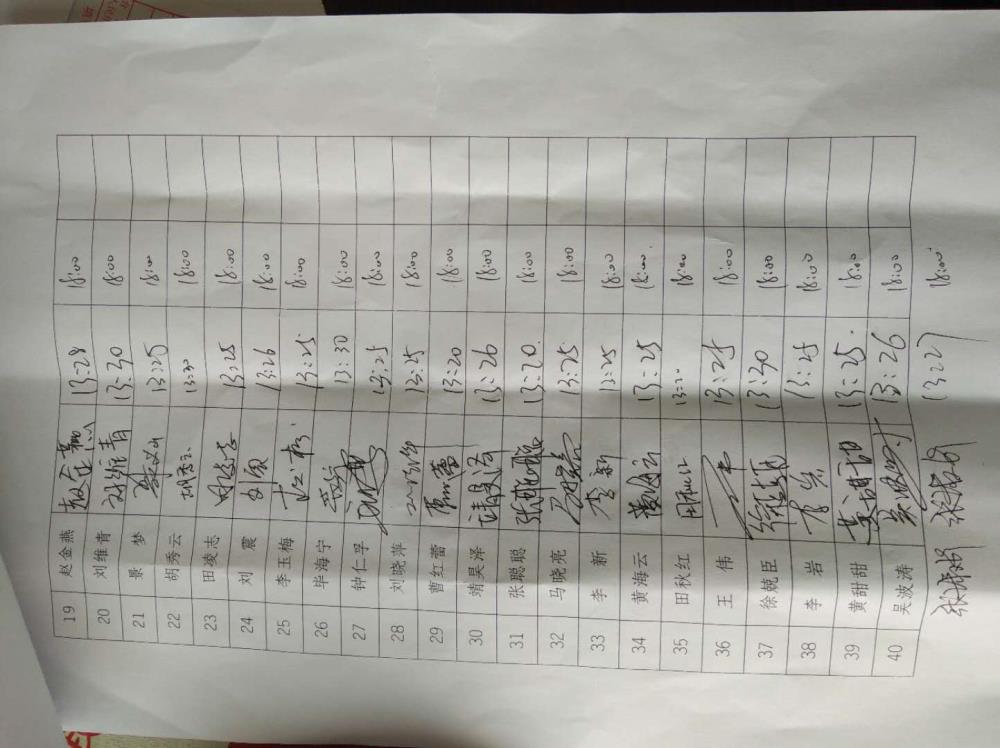 19 赵金燕 赵金燕 13:28 18:00
20 刘维青 刘维青 13:30 18:00
21 景 梦 13:25 18:00
22 胡秀云 胡秀云 13:30 18:00
23 田凌志 田凌志 13:25 18:00
24 刘 震 刘震 13:26 18:00
25 李玉梅 13:25 18:00
26 毕海宁 13:30 18:00
27 钟仁孚 13:25 18:00
28 刘晓萍 13:25 18:00
29 曹红蕾 曹红蕾 13:20 18:00
30 靖昊泽 靖昊泽 13:26 18:00
31 张聪聪 张聪聪 13:20 18:00
32 马晓亮 马晓亮 13:25 18:00
33 李 新 李新 13:25 18:00
34 黄海云 黄海云 13:25 18:00
35 田秋红 田秋红 13:20 18:00
36 王 伟 13:25 18:00
37 徐兢臣 徐兢臣 13:30 18:00
38 李 岩 李岩 13:25 18:00
39 黄甜甜 黄甜甜 13:25 18:00
40 吴波涛 吴波涛 13:26 18:00
13:27 18:00